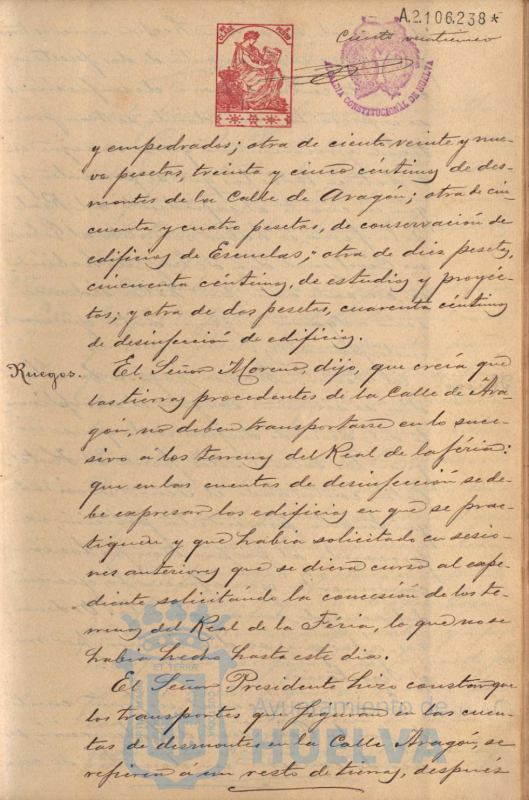 A.2106.238*
Ciento veintiseis
ALCALDIA CONSTITUCIONAL DE HUELVA
y empedrados; otra de ciento veinte y nue-
ve pesetas, treinta y cinco céntimos de des-
montes de la Calle de Aragón; otra de cin-
cuenta y cuatro pesetas, de conservación de
edificios de Escuelas; otra de diez pesetas,
cincuenta céntimos, de estudios y proyéc-
tos; y otra de dos pesetas, cuarenta céntimos
de desinfección de edificios.
Ruegos.
El Señor Moreno, dijo, que creía que
las tierras procedentes de la Calle de Ara-
gón, no deben transportarse en lo suce-
sivo á los terrenos del Real de la féria:
que en las cuentas de desinfección se de-
be expresar los edificios en que se prac-
tiquen y que habia solicitado en sesio-
nes anteriores que se diera curso al expe-
diente solicitando la concesión de los te-
rrenos del Real de la Féria, lo que no se
habia hecho hasta este dia.
El Señor Presidente hizo constar que
los transportes que figuran en las cuen-
tas de desmontes en la Calle Aragón, se
refieren á un resto de tierras, después
Ayuntamiento de
HUELVA